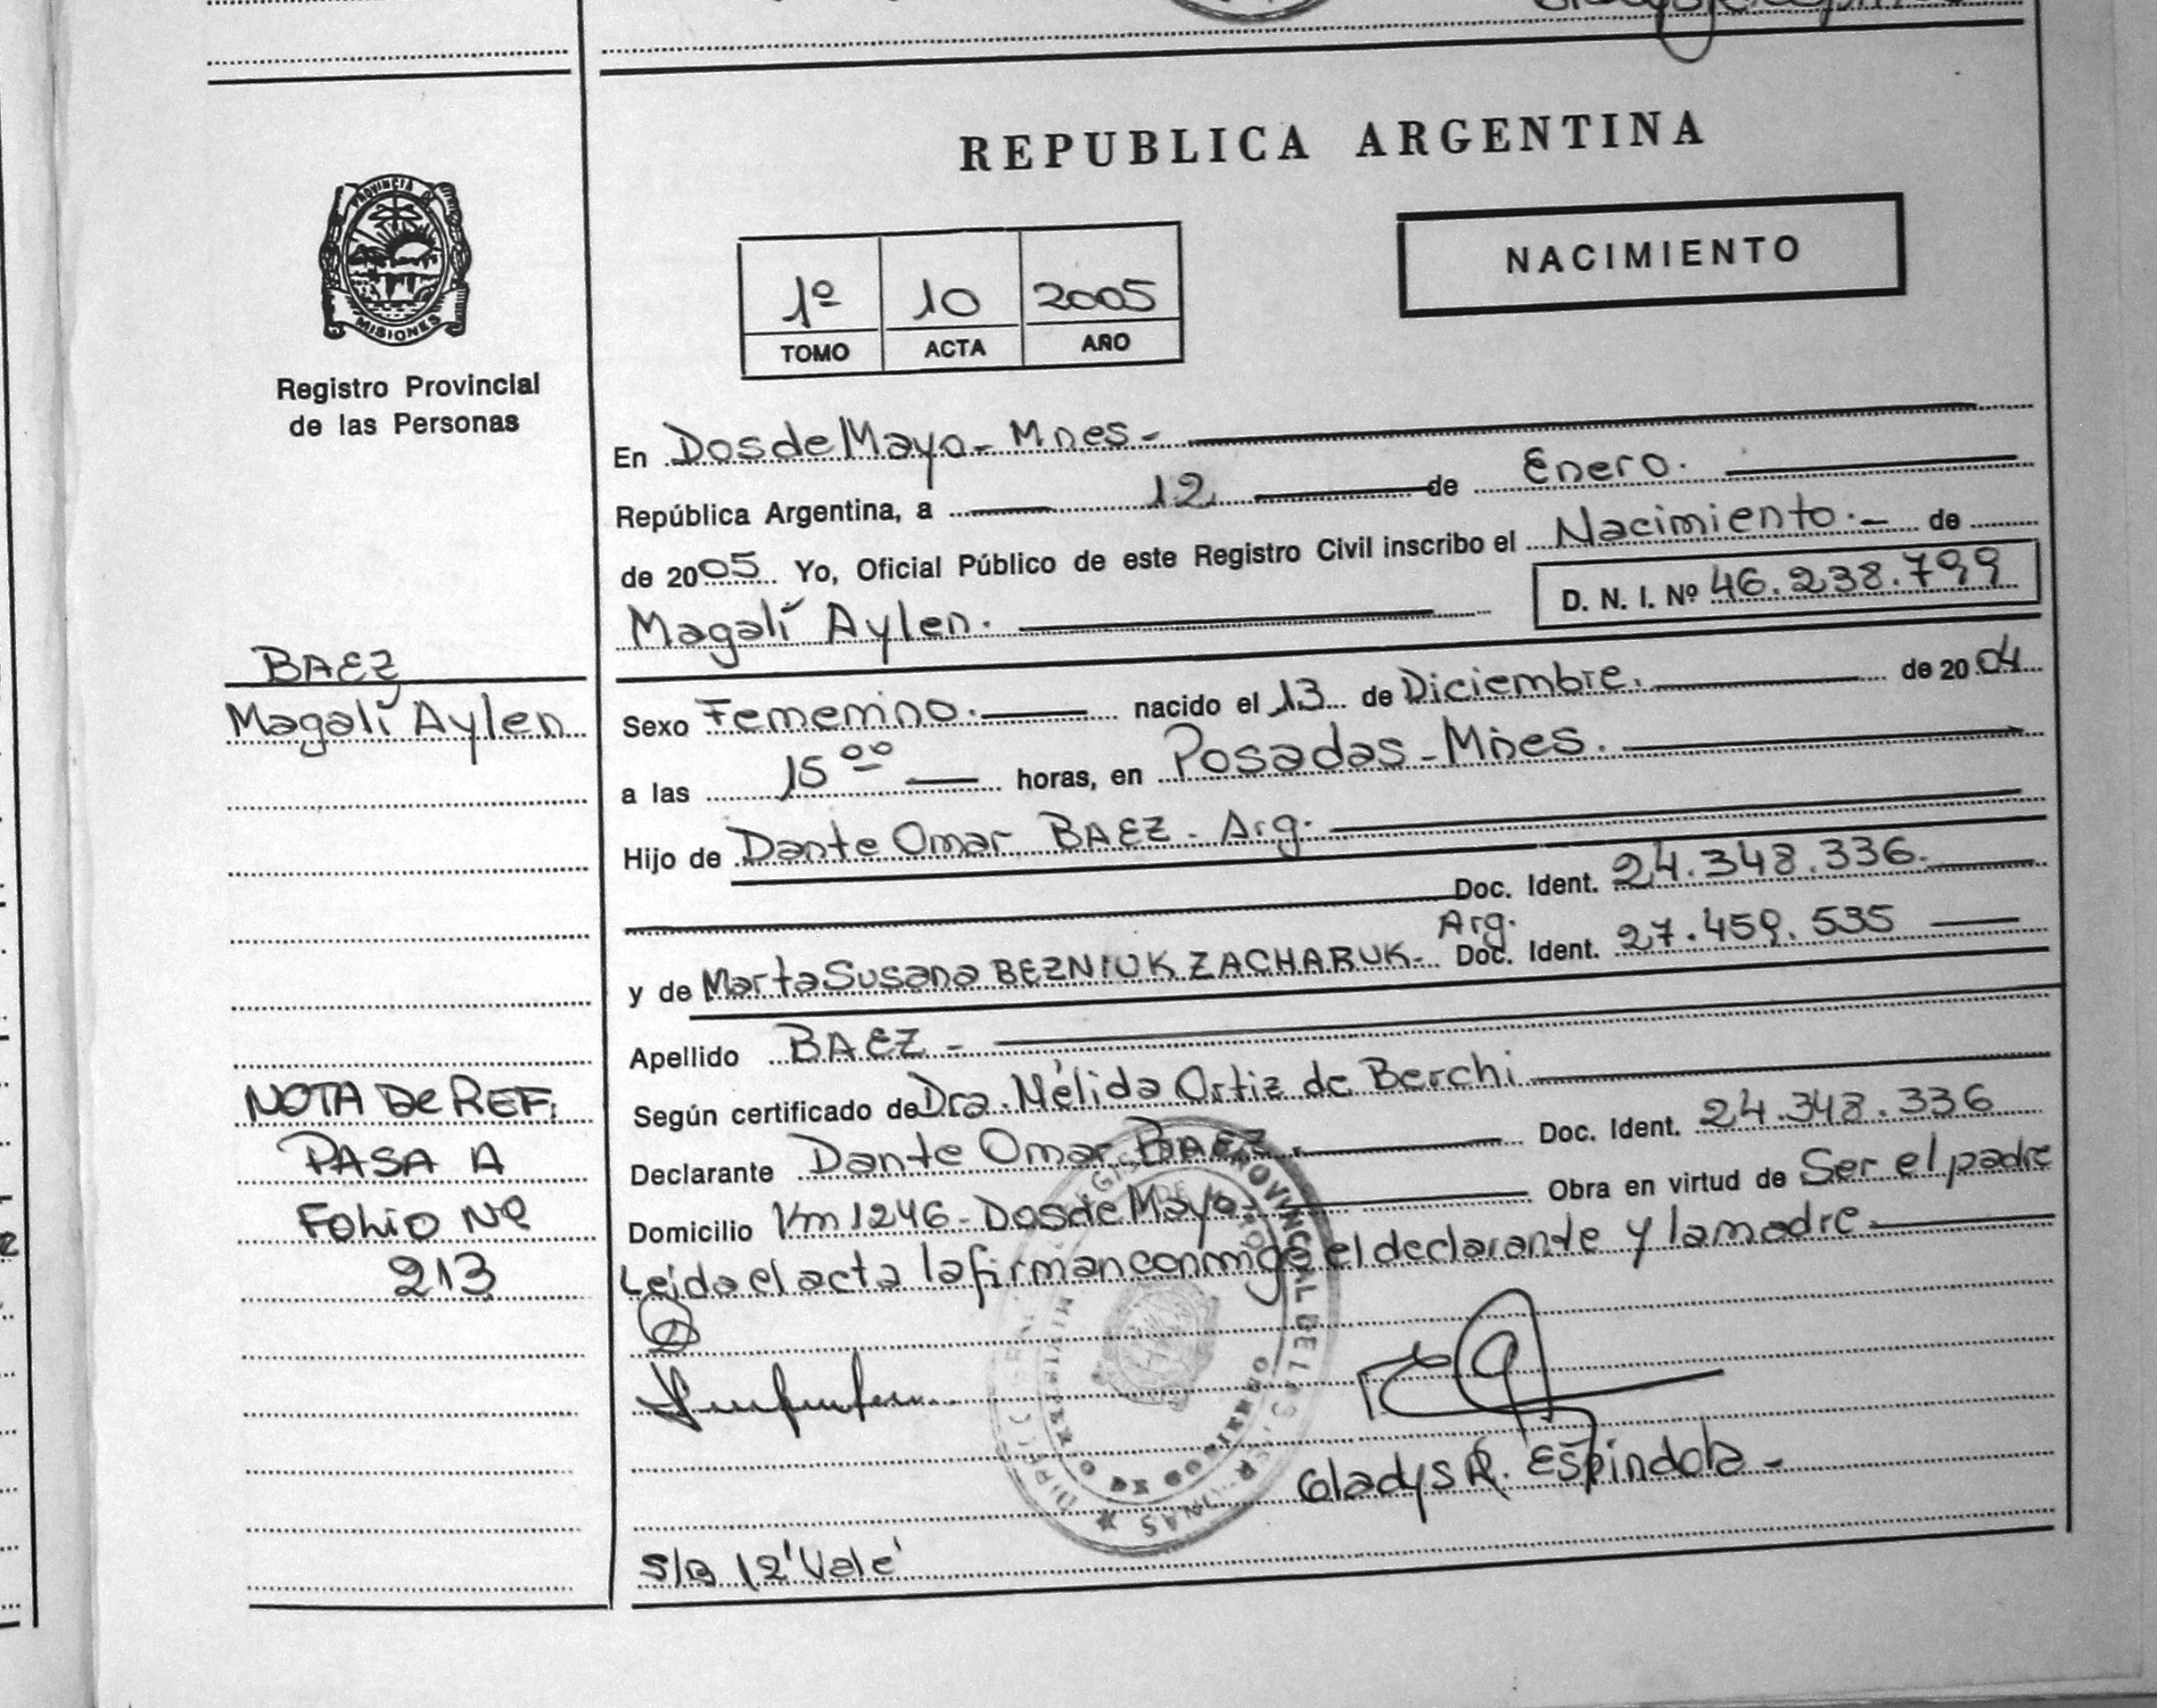 PROVINCIA DE
MISIONES
Registro Provincial
de las Personas
BAEZ
Magalí Aylen
NOTA De REF:
PASA A
FOLIO Nº
213
REPUBLICA ARGENTINA
NACIMIENTO
1º 10 2005
TOMO ACTA AÑO
En Dos de Mayo - Mnes -
República Argentina, a 12 de Enero.
de 2005 Yo, Oficial Público de este Registro Civil inscribo el Nacimiento.- de
Magalí Aylen. D. N. I. Nº 46.238.799
Sexo Femenino. nacido el 13 de Diciembre. de 2004
a las 15 ºº horas, en Posadas - Mnes.
Hijo de Dante Omar BAEZ - Arg.
Doc. Ident. 24.348.336.
Arg.
y de Marta Susana BEZNIUK ZACHARUK. Doc. Ident. 27.459.535
Apellido BAEZ -
Según certificado de Dra. Nélida Ortiz de Berchi
Declarante Dante Omar BAEZ. Doc. Ident. 24.348.336
Domicilio Km 1246 - Dos de Mayo - Obra en virtud de Ser el padre
Leída el acta la firman conmigo el declarante y la madre.
Gladys R. Espindola -
S/B 12 'Vale'